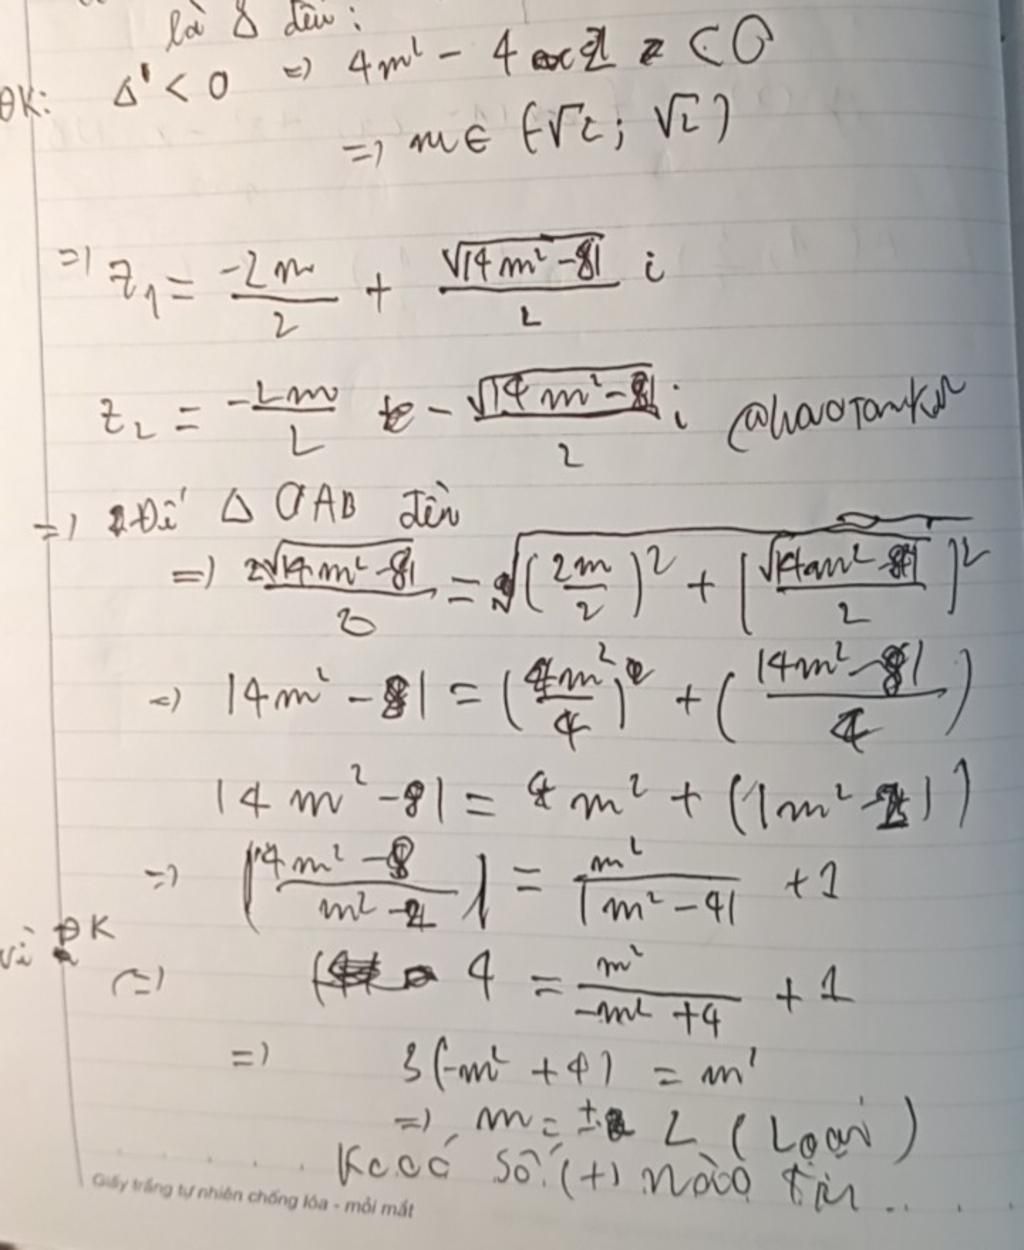 là Δ đều:
ĐK: Δ' < 0 => 4m² - 4 < 0
=> m ∈ (-√2; √2)
=> z₁ = -2m/2 + √|4m² - 8|/2 i
z₂ = -2m/2 - √|4m² - 8|/2 i
=> Để Δ OAB đều
=> 2√|4m² - 8|/2 = √((2m/2)² + [√|4m² - 8|/2]²
=> |4m² - 8| = (4m²/4) + (|4m² - 8|/4)
|4m² - 8| = m² + (|m² - 2|)
=> |4m² - 8/m² - 2| = m²/|m² - 4| + 1
vì ĐK
=> 4 = m²/-m² + 4 + 1
=> 3(-m² + 4) = m²
=> m = ± 2 (Loại)
K có số (+) nào
Giấy trắng tự nhiên chống lóa - mỏi mắt